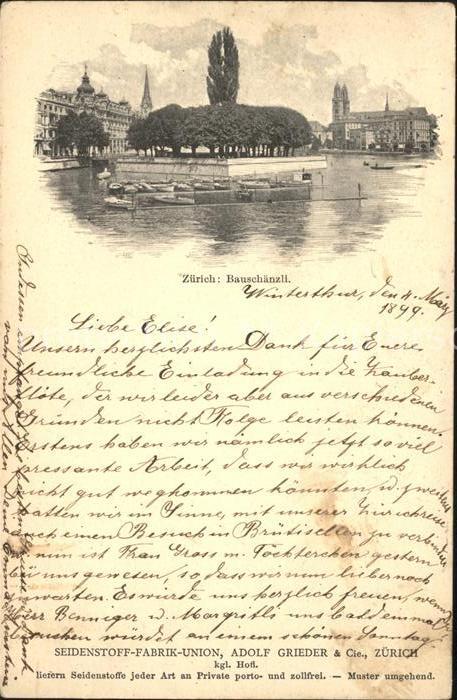 Zürich: Bauschänzli.
Winterthur, den 4. März
1899.
Liebe Elise!
Unsern herzlichsten Dank für Euere
freundliche Einladung in die Zauber-
flöte, der wir leider aber aus verschiedenen
Gründen nicht Folge leisten können.
Erstens haben wir nämlich jetzt so viel
pressante Arbeit, dass wir wirklich
nicht gut wegkommen könnten, u. zweitens
hatten wir im Sinne, mit unserer Zürichreise
auch einen Besuch in Brütisellen zu verbinden
nun ist Frau Gross m. Töchterchen gestern
bei uns gewesen, so dass wir nun lieber noch
warten. Es würde uns herzlich freuen, wenn
Herr Benneger u. Margritli uns bald einmal
besuchen würdet an einem schönen Sonntag
Indessen empfangt
von uns Allen Deine
SEIDENSTOFF-FABRIK-UNION, ADOLF GRIEDER & Cie., ZÜRICH
kgl. Hofl.
liefern Seidenstoffe jeder Art an Private porto- und zollfrei. — Muster umgehend.